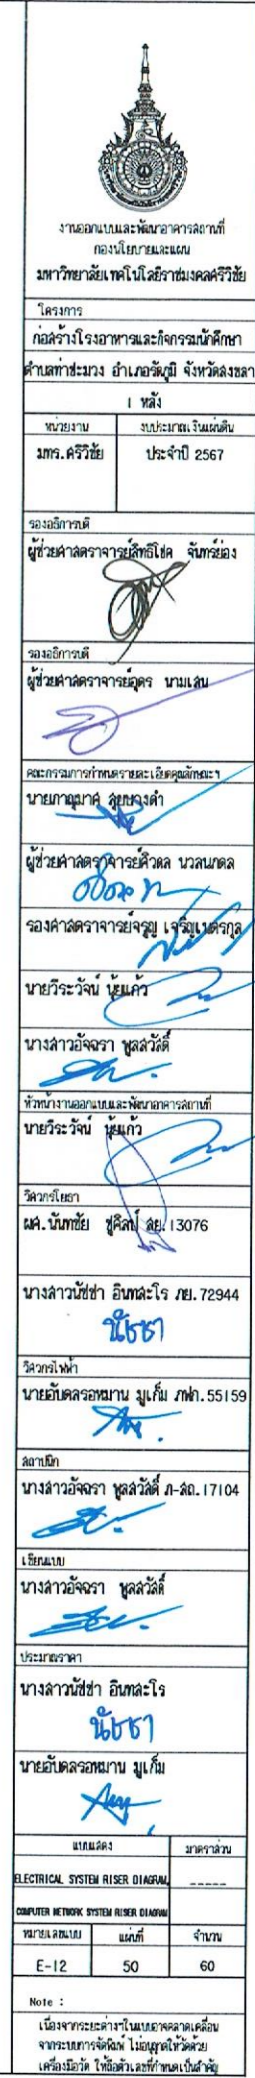 งานออกแบบและพัฒนาอาคารสถานที่
กองนโยบายและแผน
มหาวิทยาลัยเทคโนโลยีราชมงคลศรีวิชัย
โครงการ
ก่อสร้างโรงอาหารและกิจกรรมนักศึกษา
ตำบลท่าชะมวง อำเภอรัตภูมิ จังหวัดสงขลา
1 หลัง
หน่วยงาน งบประมาณเงินแผ่นดิน
มทร.ศรีวิชัย ประจำปี 2567
รองอธิการบดี
ผู้ช่วยศาสตราจารย์สิทธิโชค จันทร์ย่อง
รองอธิการบดี
ผู้ช่วยศาสตราจารย์อุดร นามเสน
คณะกรรมการกำหนดรายละเอียดคุณลักษณะฯ
นายภาณุมาศ สุยบางดำ
ผู้ช่วยศาสตราจารย์ศิวดล นวลนภดล
รองศาสตราจารย์จรูญ เจริญเนตรกุล
นายวีระวัจน์ นุ้ยแก้ว
นางสาวอัจฉรา พูลสวัสดิ์
หัวหน้างานออกแบบและพัฒนาอาคารสถานที่
นายวีระวัจน์ นุ้ยแก้ว
วิศวกรโยธา
ผศ.นันทชัย ชูศิลป์ สย.13076
นางสาวนัชชา อินทสะโร ภย.72944
นัชชา
วิศวกรไฟฟ้า
นายอับดลรอหมาน มูเก็ม ภฟก.55159
สถาปนิก
นางสาวอัจฉรา พูลสวัสดิ์ ภ-สถ.17104
เขียนแบบ
นางสาวอัจฉรา พูลสวัสดิ์
ประมาณราคา
นางสาวนัชชา อินทสะโร
นัชชา
นายอับดลรอหมาน มูเก็ม
แบบแสดง มาตราส่วน
ELECTRICAL SYSTEM RISER DIAGRAM, -----
COMPUTER NETWORK SYSTEM RISER DIAGRAM
หมายเลขแบบ แผ่นที่ จำนวน
E-12 50 60
Note :
เนื่องจากระยะต่างๆในแบบอาจคลาดเคลื่อน
จากระบบการจัดพิมพ์ ไม่อนุญาตให้วัดด้วย
เครื่องมือวัด ให้ถือตัวเลขที่กำหนดเป็นสำคัญ